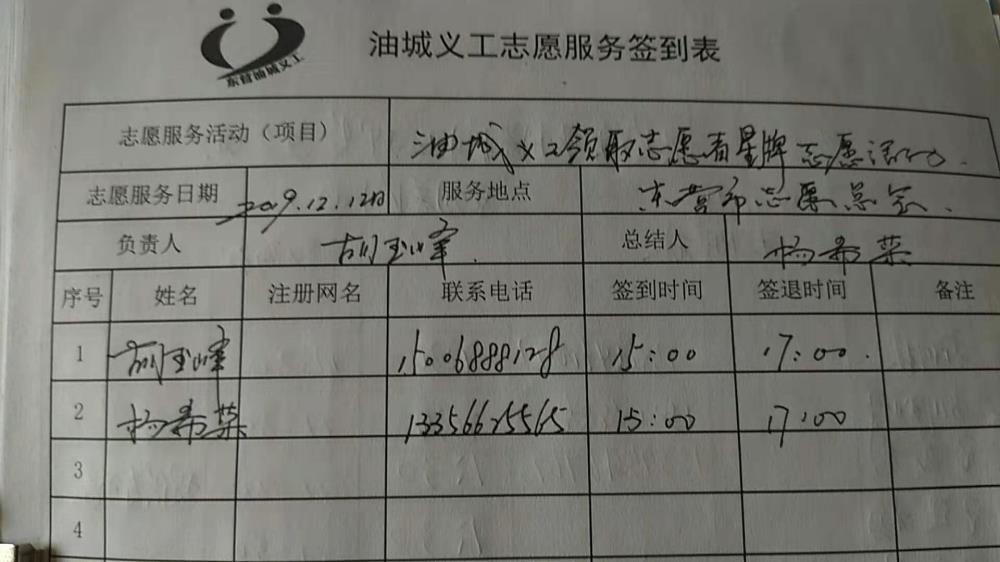 东营油城义工
油城义工志愿服务签到表
志愿服务活动（项目） 油城义工领取志愿者星牌志愿活动.
志愿服务日期 2019.12.12日 服务地点 东营市志愿总会.
负责人 胡玉峰. 总结人 杨希荣
序号 姓名 注册网名 联系电话 签到时间 签退时间 备注
1 胡玉峰 15006888128 15:00 17:00.
2 杨希荣 13356625565 15:00 17:00
3
4